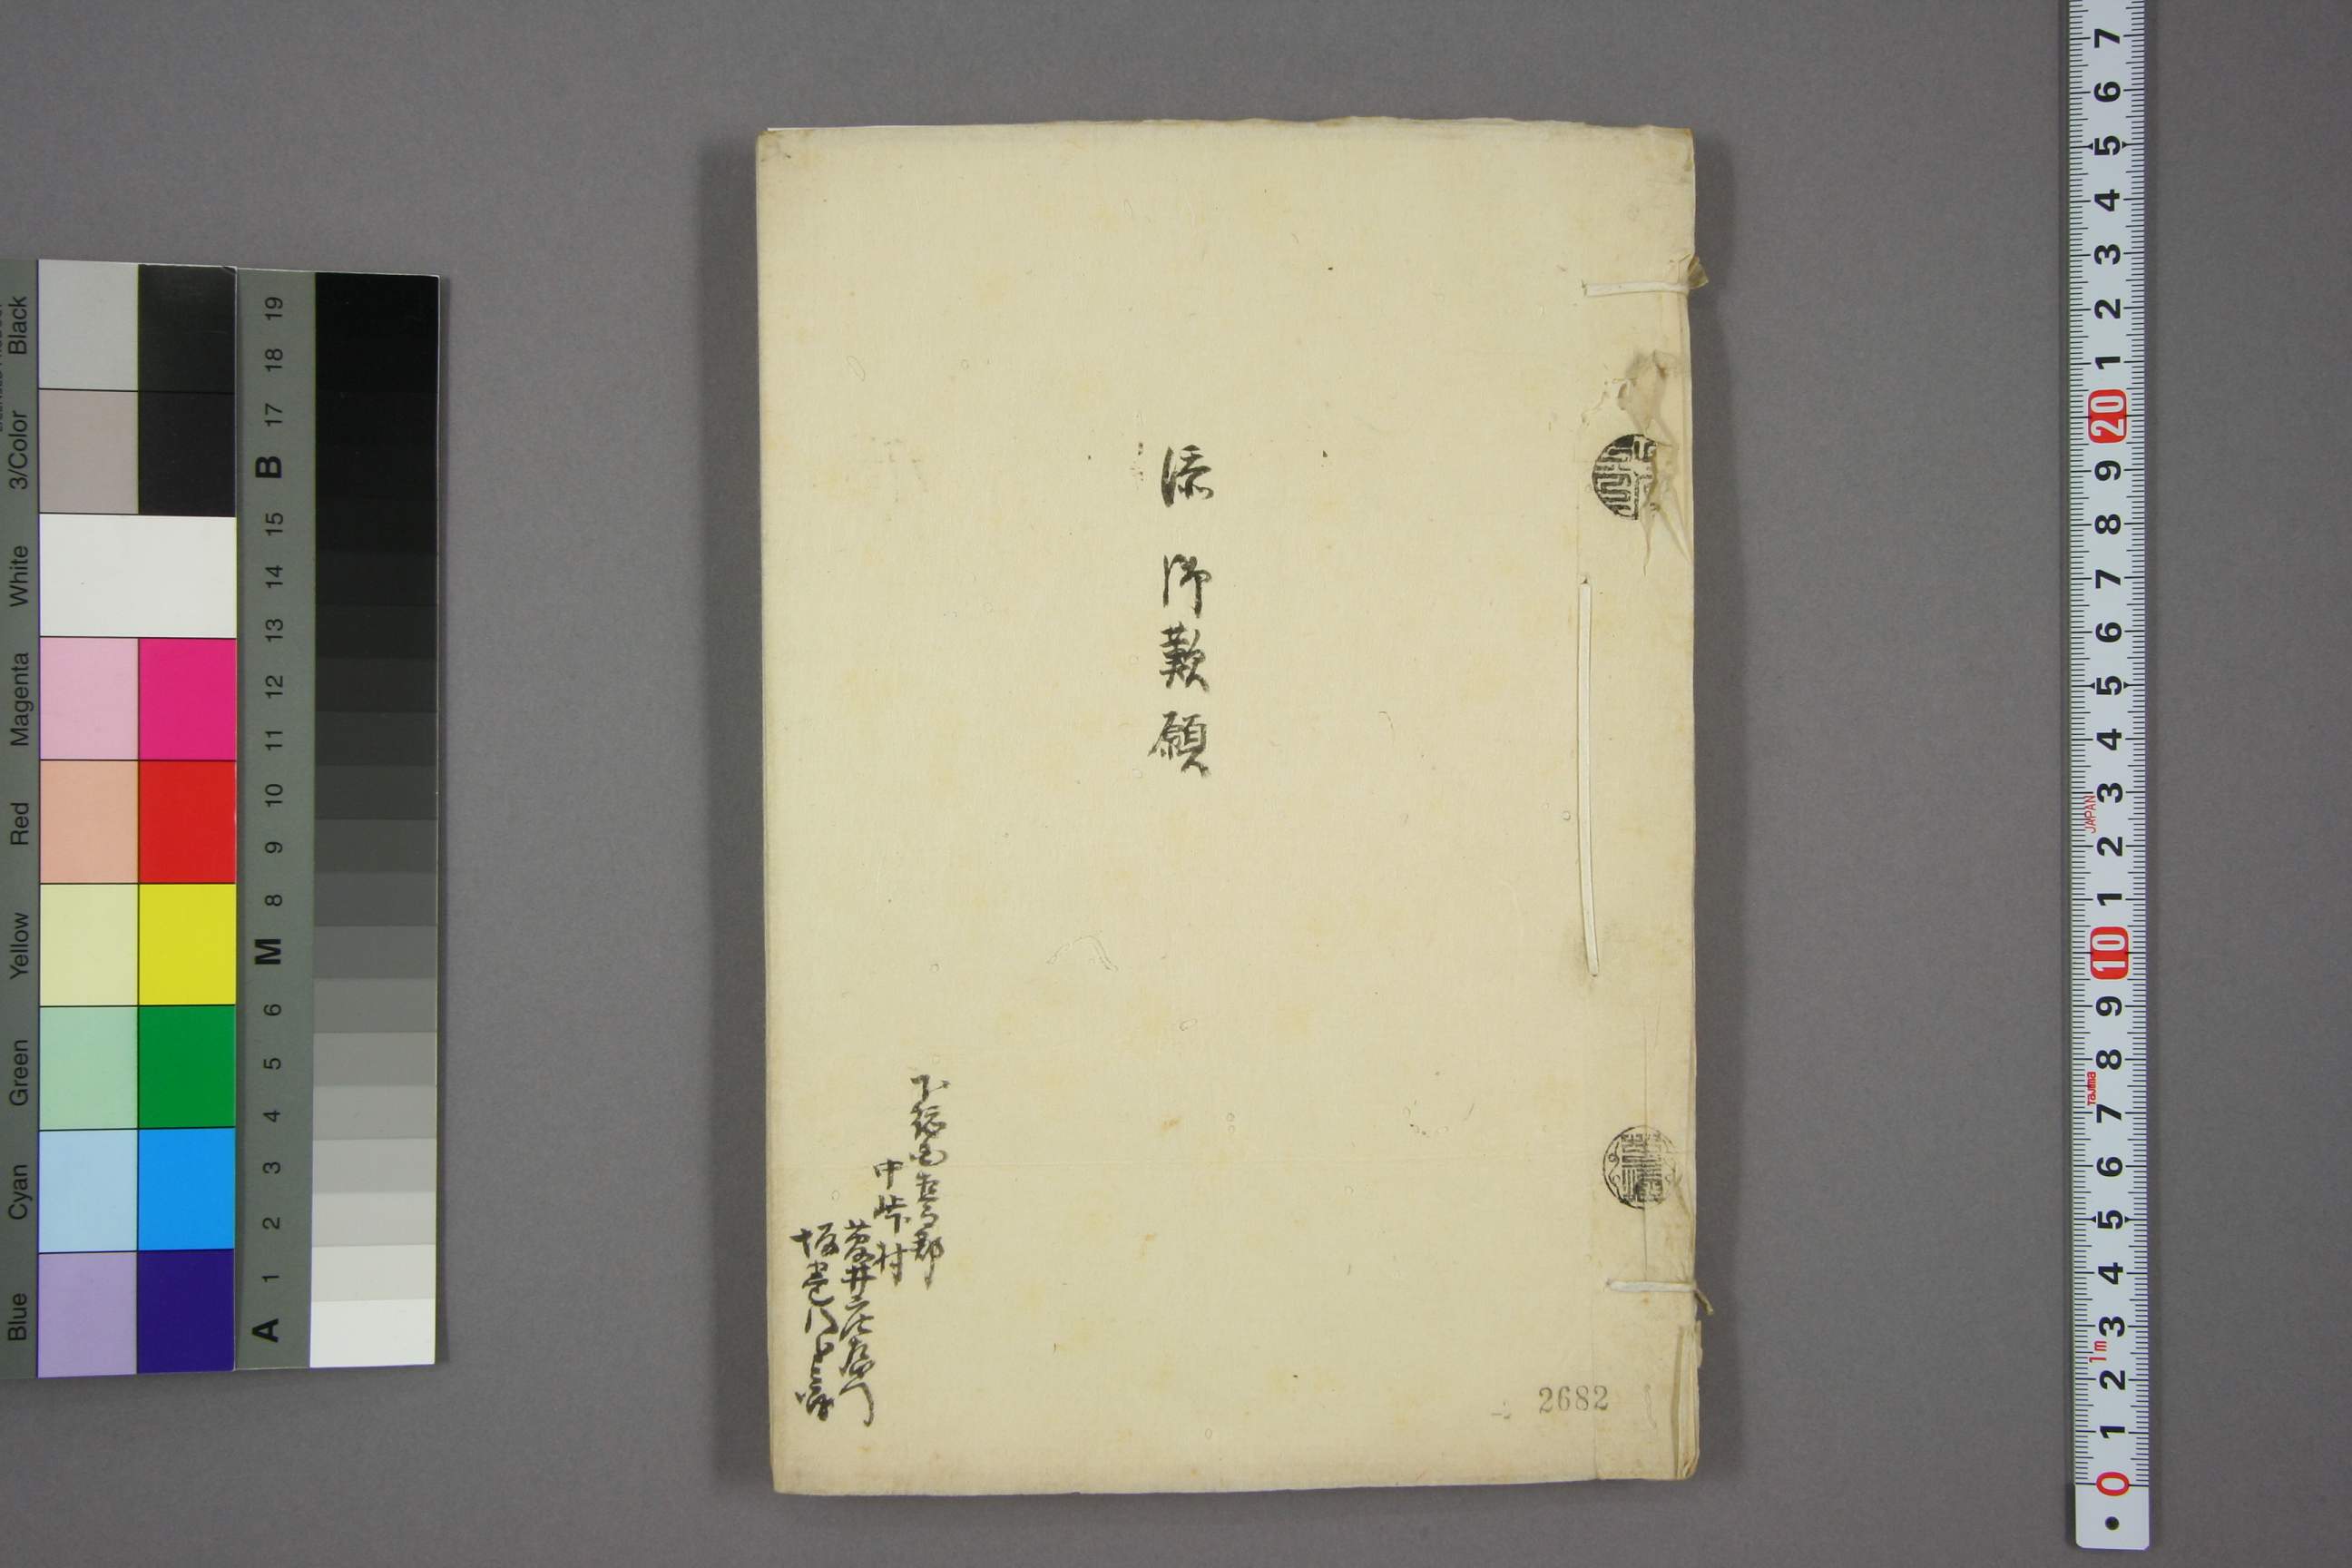 添 御歎願
下総国相馬郡
中峠村
2682
Black
3/Color
White
Magenta
Red
Yellow
Green
Cyan
Blue
19
18
17
B
15
14
13
12
11
10
9
8
M
6
5
4
3
2
1
A
7
6
5
4
3
2
1
20
9
8
7
6
5
4
3
2
1
10
9
8
7
6
5
4
3
2
1
0
JAPAN
Tajima
1m